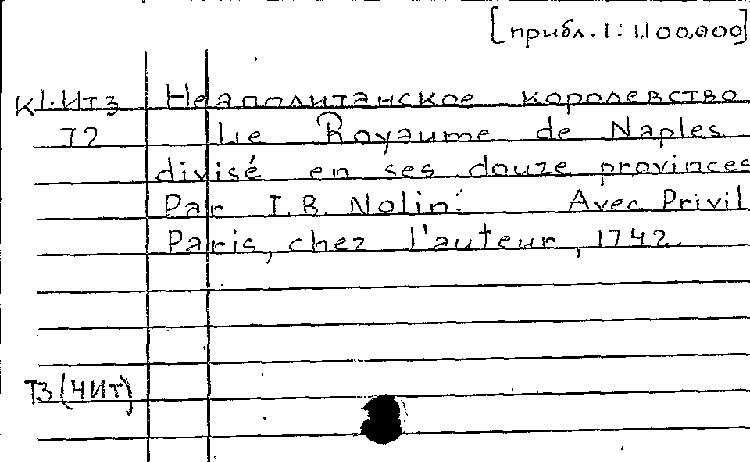 [прибл. 1: 1.100.000]
К1-Ит3 Неаполитанское королевство
72 Le Royaume de Naples
divisé en ses douze provinces
Par I.B. Nolin: Avec Privil
Paris, chez l'auteur, 1742
Т3(ЧИТ)